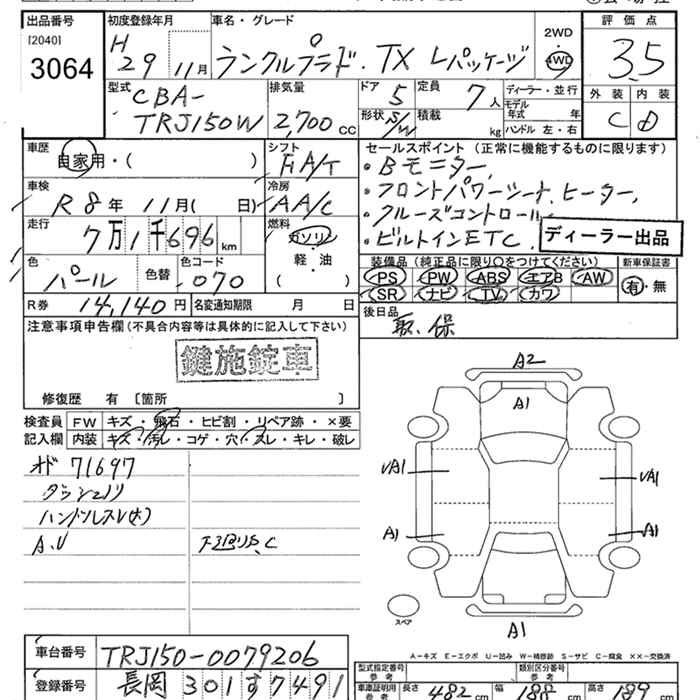 出品番号 初度登録年月 車名・グレード 評価点
[2040]
3064
H29 11月 ランクルプラド・TX Lパッケージ 2WD 4WD 3.5
型式 排気量 ドア 定員 ディーラー・並行 外装 内装
CBA- 5 7人 モデル年式 年 C D
TRJ150W 2,700cc 形状 S/W 積載 kg ハンドル 左・右
車歴 シフト セールスポイント (正常に機能するものに限ります)
自家用・( ) FA/T ・Bモニター
車検 冷房 ・フロントパワーシート、ヒーター、
R8年 11月( 日) AA/C ・クルーズコントロール
走行 燃料 ・ビルトインETC
7万1千696km ガソリン ディーラー出品
色 色替 色コード 軽・油 装備品 (純正品に限り○をつけてください) 新車保証書
パール 070 ( ) PS PW ABS エアB AW 有・無
SR ナビ TV カワ
R券 14,140円 名変通知期限 月 日 後日品
取、保
注意事項申告欄(不具合内容等は具体的に記入して下さい)
鍵施錠車
修復歴 有 〔箇所 〕
検査員 FW キズ・飛石・ヒビ割・リペア跡・×要
記入欄 内装 キズ・汚レ・コゲ・穴・スレ・キレ・破レ
オド 71697
ダッシュノリ
ハンドルスレ(大)
A.U
A2
A1
UA1 UA1
A1 A1
スペア
A1
A-キズ E-エクボ U-凹み W-補修跡 S-サビ C-腐食 XX-交換済
車台番号 TRJ150-0079206 型式指定番号 参考 類別区分番号 参考
登録番号 長岡 301す7491 車庫証明用 参考 長さ 482cm 幅 188cm 高さ 189cm